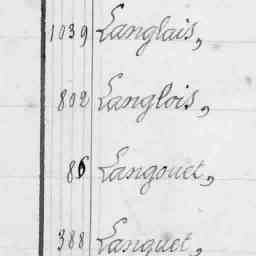 1039 Langlais,
802 Langlois,
86 Langouet,
388 Languet,